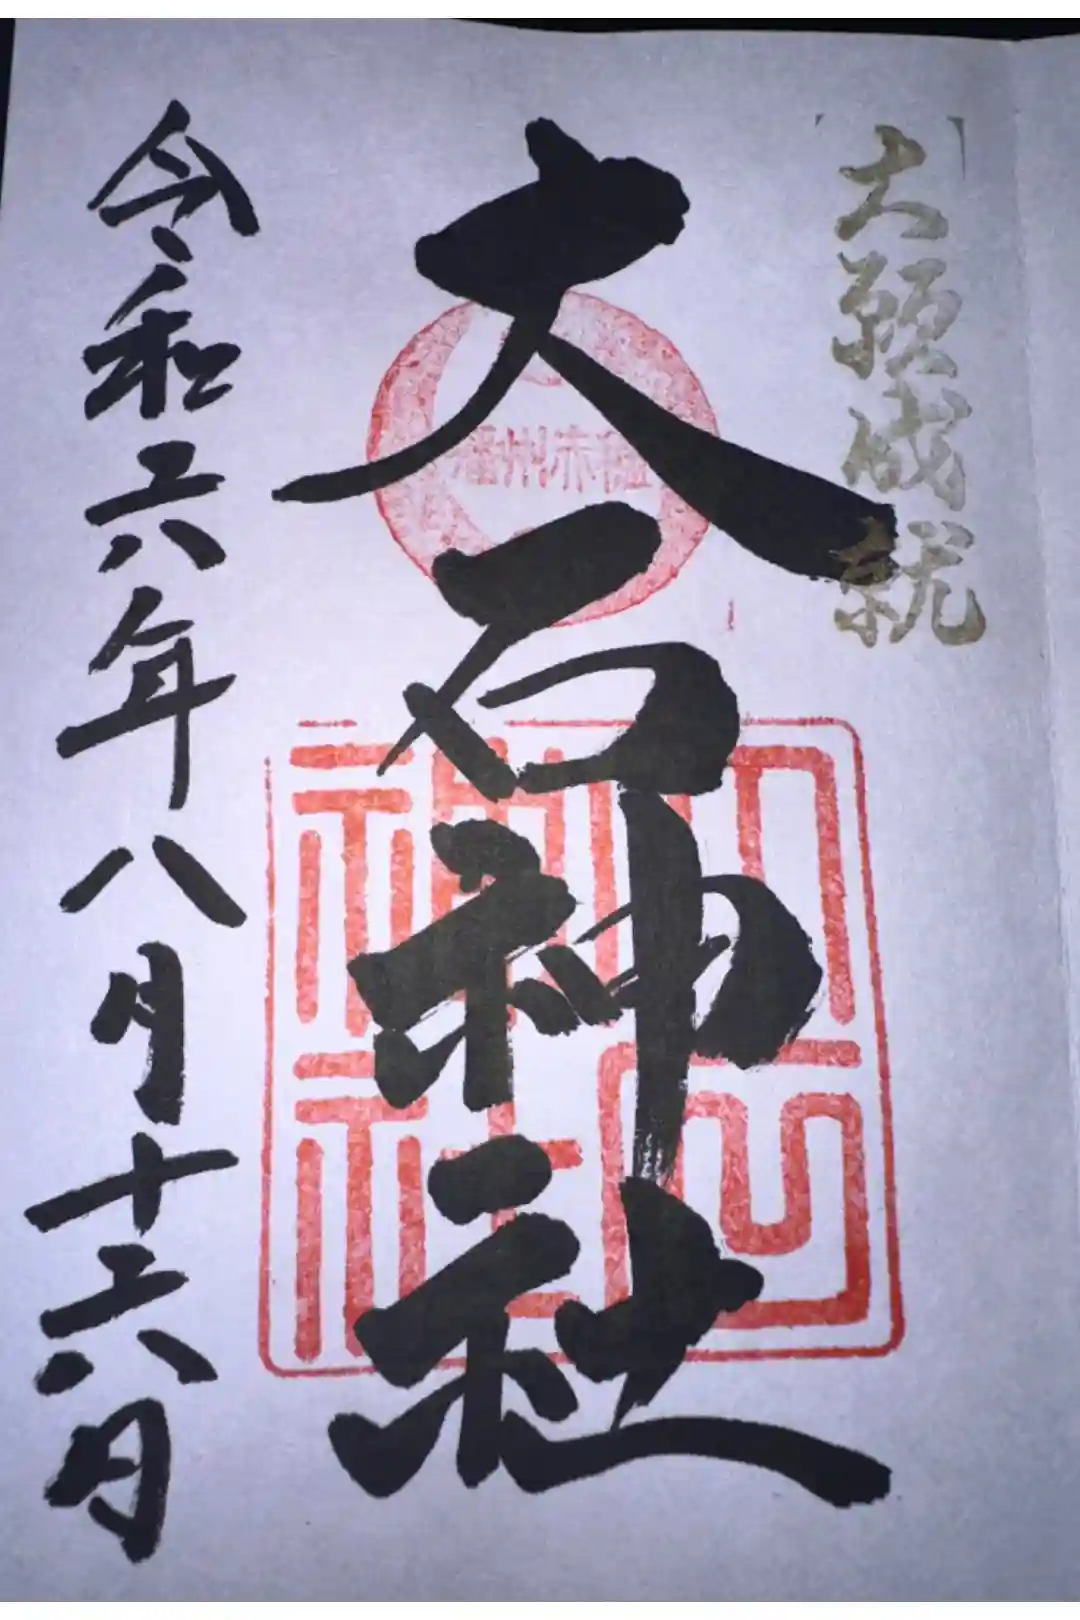 大願成就
大石神社
播州赤穂
大石神社
令和六年八月十六日